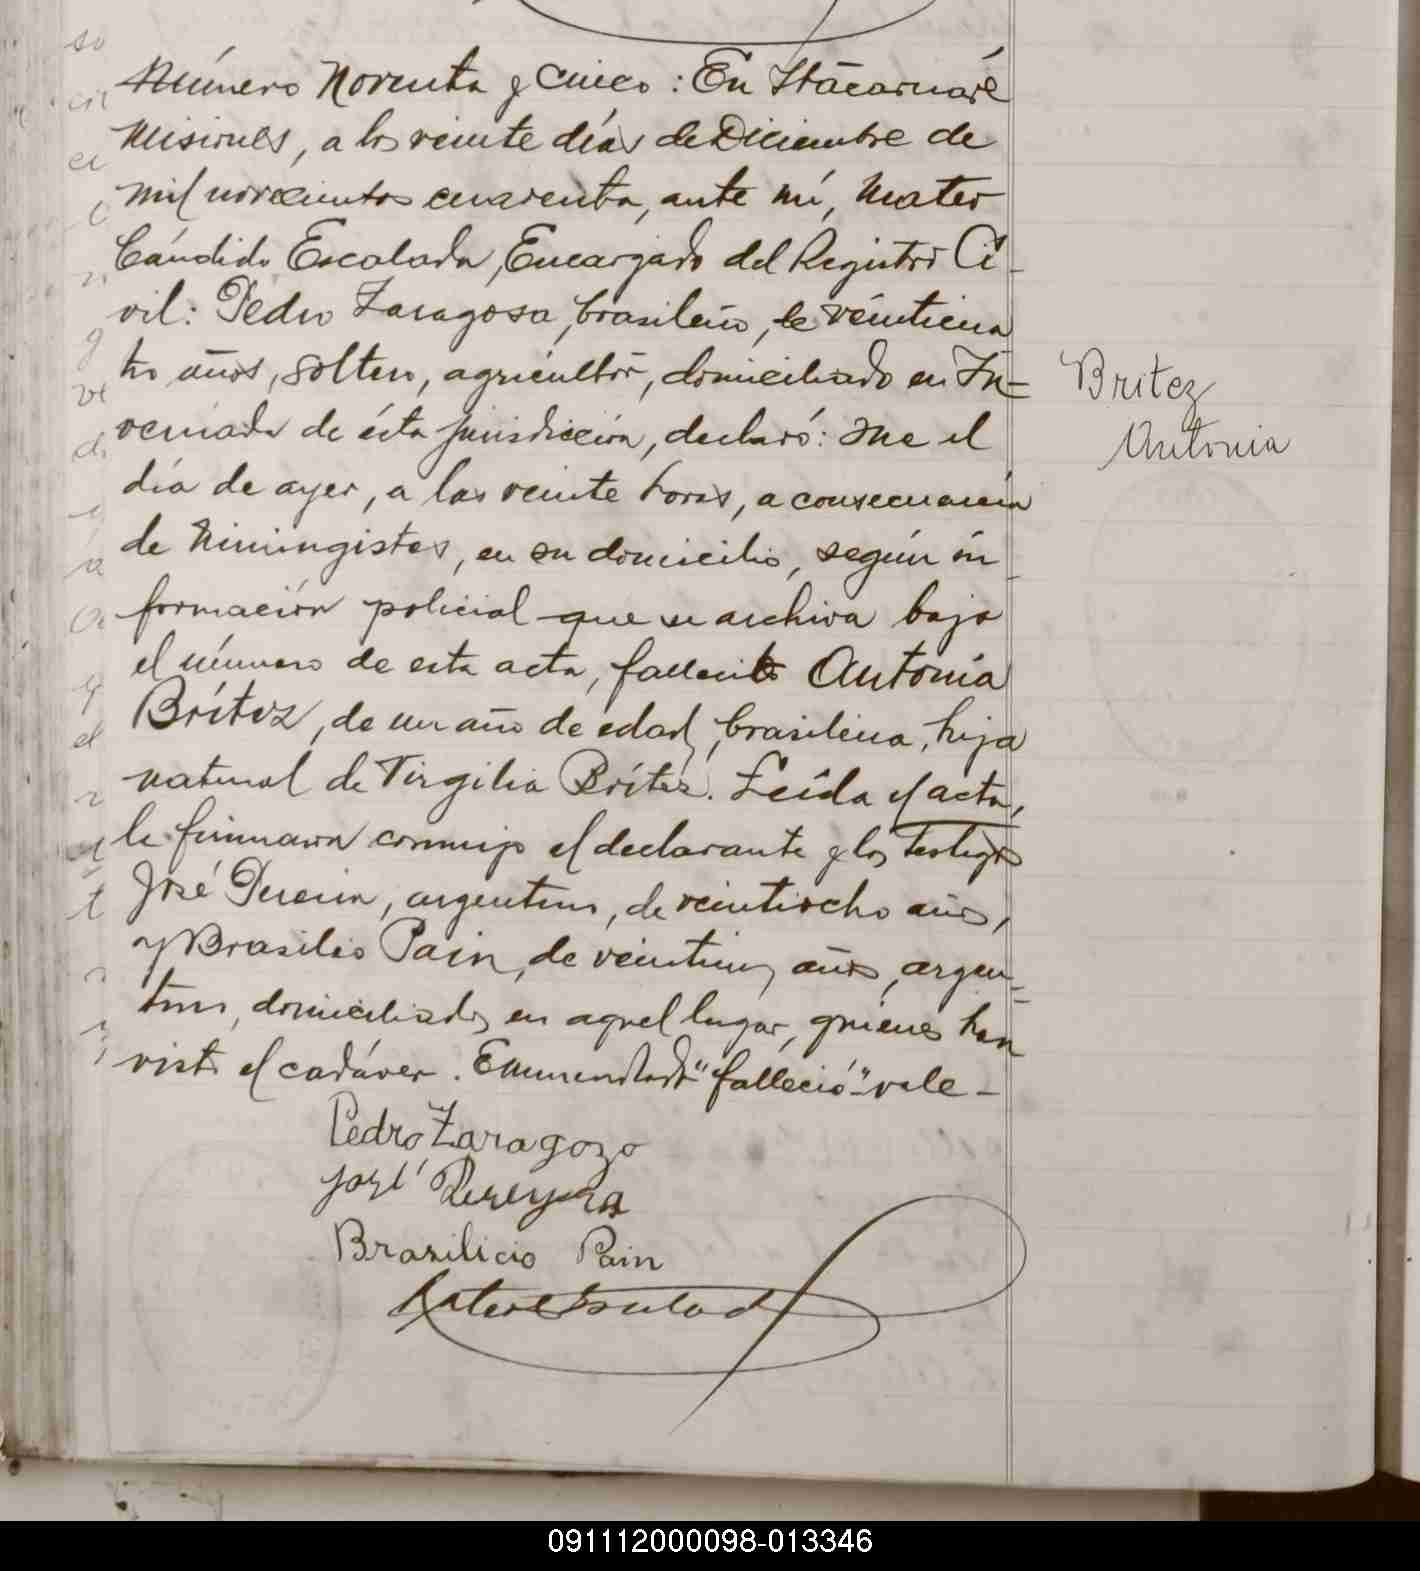 Número Noventa y cinco: En Itacaruaré
Misiones, a los veinte días de Diciembre de
mil novecientos cuarenta, ante mí, Mateo
Cándido Escalada, Encargado del Registro Ci-
vil: Pedro Zaragosa, brasileño, de veinticua
tro años, soltero, agricultor, domiciliado en In-
vernada de ésta jurisdicción, declaró: Que el
día de ayer, a las veinte horas, a consecuencia
de Miningistes, en su domicilio, según in_
formación policial que se archiva bajo
el número de esta acta, falleció Antonia
Brítez, de un año de edad, brasilena, hija
natural de Virgilia Brítez. Leída el acta,
la firmaron conmigo el declarante y los testigos
José Pereira, argentino, de veintiocho años,
y Brasilio Pain, de veintiun años, argen=
tino, domiciliados en aquel lugar, quienes han
visto el cadáver. Enmendado "falleció" vale-
Pedro Zaragozo
José Pereyra
Brasilicio Pain
Britez
Antonia
091112000098-013346